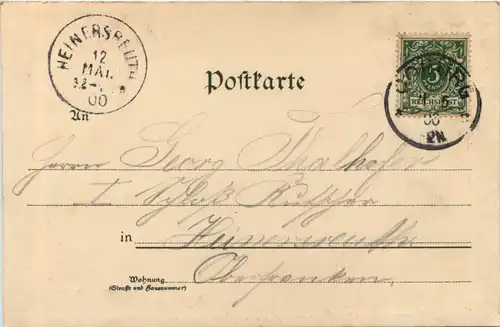 HEINERSREUTH
12
MAI
00
5
REICHSPOST
00
2N
Postkarte
An
Herrn Georg Thalhofer
I Schloß
in
Oberfranken
Wohnung
(Straße und Hausnummer)